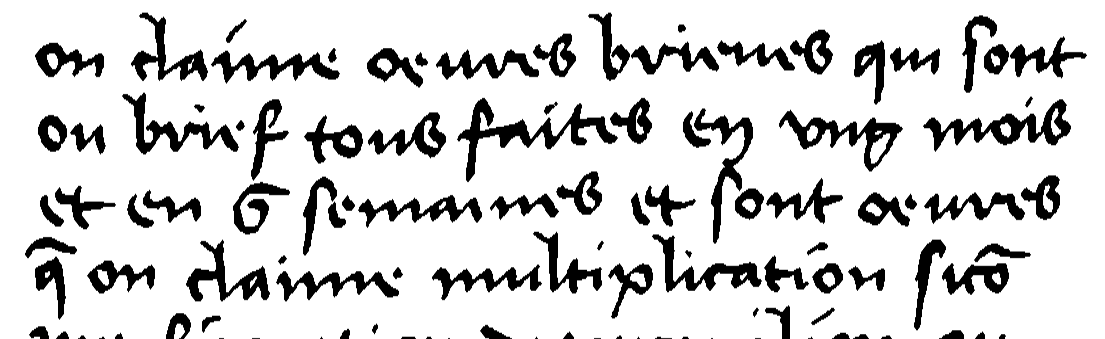 on claime oeuvres brieues qui sont
ou brief tous faites en vng mois
et en 6 semaines et sont oeuures
q̄ on claime multiplication sicō